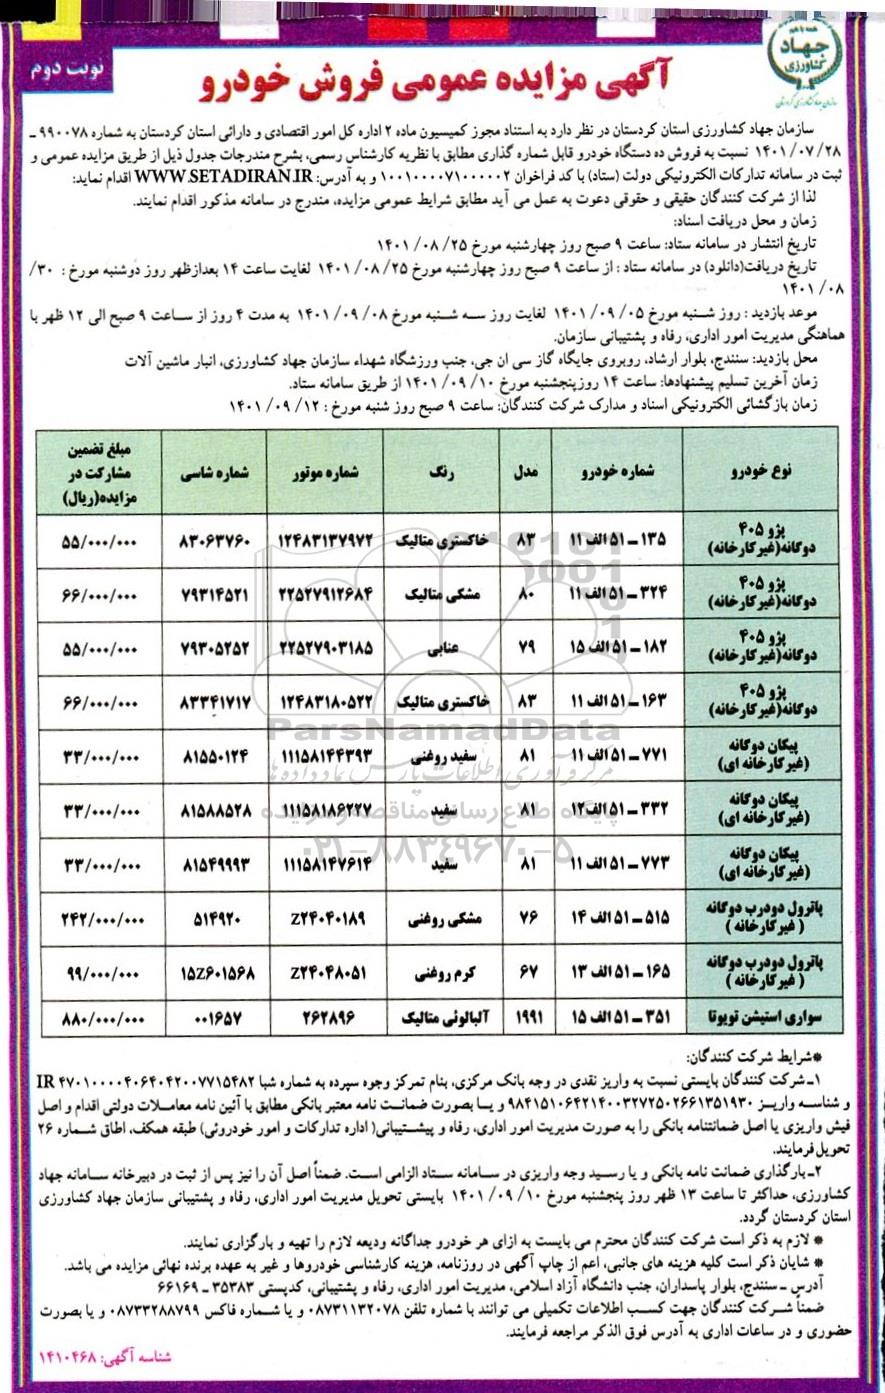 همه با هم
جهاد
کشاورزی
نوبت دوم
آگهی مزایده عمومی فروش خودرو
سازمان جهاد کشاورزی استان کردستان در نظر دارد به استناد مجوز کمیسیون ماده ۲ اداره کل امور اقتصادی و دارائی استان کردستان به شماره ۹۹۰۰۷۸ ـ
۱۴۰۱/۰۷/۲۸ نسبت به فروش ده دستگاه خودرو قابل شماره گذاری مطابق با نظریه کارشناس رسمی، بشرح مندرجات جدول ذیل از طریق مزایده عمومی و
ثبت در سامانه تدارکات الکترونیکی دولت (ستاد) با کد فراخوان ۱۰۰۱۰۰۰۰۷۱۰۰۰۰۰۲ و به آدرس: WWW.SETADIRAN.IR اقدام نماید:
لذا از شرکت کنندگان حقیقی و حقوقی دعوت به عمل می آید مطابق شرایط عمومی مزایده، مندرج در سامانه مذکور اقدام نمایند.
زمان و محل دریافت اسناد:
تاریخ انتشار در سامانه ستاد: ساعت ۹ صبح روز چهارشنبه مورخ ۱۴۰۱/۰۸/۲۵
تاریخ دریافت(دانلود) در سامانه ستاد : از ساعت ۹ صبح روز چهارشنبه مورخ ۱۴۰۱/۰۸/۲۵ لغایت ساعت ۱۴ بعدازظهر روز دوشنبه مورخ : ۳۰/
۱۴۰۱/۰۸
موعد بازدید : روز شنبه مورخ ۱۴۰۱/۰۹/۰۵ لغایت روز سه شنبه مورخ ۱۴۰۱/۰۹/۰۸ به مدت ۴ روز از ساعت ۹ صبح الی ۱۲ ظهر با
هماهنگی مدیریت امور اداری، رفاه و پشتیبانی سازمان.
محل بازدید: سنندج، بلوار ارشاد، روبروی جایگاه گاز سی ان جی، جنب ورزشگاه شهداء سازمان جهاد کشاورزی، انبار ماشین آلات
زمان آخرین تسلیم پیشنهادها: ساعت ۱۴ روزپنجشنبه مورخ ۱۴۰۱/۰۹/۱۰ از طریق سامانه ستاد.
زمان بازگشائی الکترونیکی اسناد و مدارک شرکت کنندگان: ساعت ۹ صبح روز شنبه مورخ : ۱۴۰۱/۰۹/۱۲
نوع خودرو شماره خودرو مدل رنگ شماره موتور شماره شاسی مبلغ تضمین مشارکت در مزایده(ریال)
پژو ۴۰۵ دوگانه(غیرکارخانه) ۱۳۵ ـ ۵۱ الف ۱۱ ۸۳ خاکستری متالیک ۱۲۴۸۳۱۳۷۹۷۲ ۸۳۰۶۳۷۶۰ ۵۵/۰۰۰/۰۰۰
پژو ۴۰۵ دوگانه(غیرکارخانه) ۳۲۴ ـ ۵۱ الف ۱۱ ۸۰ مشکی متالیک ۲۲۵۲۷۹۱۲۶۸۴ ۷۹۳۱۴۵۲۱ ۶۶/۰۰۰/۰۰۰
پژو ۴۰۵ دوگانه(غیرکارخانه) ۱۸۲ ـ ۵۱ الف ۱۵ ۷۹ عنابی ۲۲۵۲۷۹۰۳۱۸۵ ۷۹۳۰۵۲۵۲ ۵۵/۰۰۰/۰۰۰
پژو ۴۰۵ دوگانه(غیرکارخانه) ۱۶۳ ـ ۵۱ الف ۱۱ ۸۳ خاکستری متالیک ۱۲۴۸۳۱۸۰۵۲۲ ۸۳۳۴۱۷۱۷ ۶۶/۰۰۰/۰۰۰
پیکان دوگانه (غیرکارخانه ای) ۷۷۱ ـ ۵۱ الف ۱۱ ۸۱ سفید روغنی ۱۱۱۵۸۱۴۴۳۹۳ ۸۱۵۵۰۱۲۴ ۳۳/۰۰۰/۰۰۰
پیکان دوگانه (غیرکارخانه ای) ۳۳۲ ـ ۵۱ الف۱۲ ۸۱ سفید ۱۱۱۵۸۱۸۶۲۲۷ ۸۱۵۸۸۵۲۸ ۳۳/۰۰۰/۰۰۰
پیکان دوگانه (غیرکارخانه ای) ۷۷۳ ـ ۵۱ الف ۱۱ ۸۱ سفید ۱۱۱۵۸۱۴۷۶۱۴ ۸۱۵۴۹۹۹۳ ۳۳/۰۰۰/۰۰۰
پاترول دودرب دوگانه ( غیرکارخانه ) ۵۱۵ ـ ۵۱ الف ۱۴ ۷۶ مشکی روغنی Z۲۴۰۴۰۱۸۹ ۵۱۴۹۲۰ ۲۴۲/۰۰۰/۰۰۰
پاترول دودرب دوگانه ( غیرکارخانه ) ۱۶۵ ـ ۵۱ الف ۱۳ ۶۷ کرم روغنی Z۲۴۰۴۸۰۵۱ ۱۵Z۶۰۱۵۶۸ ۹۹/۰۰۰/۰۰۰
سواری استیشن تویوتا ۳۵۱ ـ ۵۱ الف ۱۵ ۱۹۹۱ آلبالوئی متالیک ۲۶۲۸۹۶ ۰۰۱۶۵۷ ۸۸۰/۰۰۰/۰۰۰
ParsNamadData
مرکز فرآوری اطلاعات پارس نماد داده ها
پایگاه اطلاع رسانی مناقصه و مزایده
۰۲۱-۸۸۳۴۹۶۷۰-۵
*شرایط شرکت کنندگان:
۱ـ شرکت کنندگان بایستی نسبت به واریز نقدی در وجه بانک مرکزی، بنام تمرکز وجوه سپرده به شماره شبا IR ۴۷۰۱۰۰۰۰۴۰۶۴۰۴۲۰۰۷۷۱۵۴۸۲
و شناسه واریز ۹۸۴۱۵۱۰۶۴۲۱۴۰۰۳۲۷۲۵۰۲۶۶۱۳۵۱۹۳۰ و یا بصورت ضمانت نامه معتبر بانکی مطابق با آئین نامه معاملات دولتی اقدام و اصل
فیش واریزی یا اصل ضمانتنامه بانکی را به صورت مدیریت امور اداری، رفاه و پشتیبانی( اداره تدارکات و امور خودروئی) طبقه همکف، اطاق شماره ۲۶
تحویل فرمایند.
۲ـ بارگذاری ضمانت نامه بانکی و یا رسید وجه واریزی در سامانه ستاد الزامی است. ضمناً اصل آن را نیز پس از ثبت در دبیرخانه سامانه جهاد
کشاورزی، حداکثر تا ساعت ۱۳ ظهر روز پنجشنبه مورخ ۱۴۰۱/۰۹/۱۰ بایستی تحویل مدیریت امور اداری، رفاه و پشتیبانی سازمان جهاد کشاورزی
استان کردستان گردد.
* لازم به ذکر است شرکت کنندگان محترم می بایست به ازای هر خودرو جداگانه ودیعه لازم را تهیه و بارگزاری نمایند.
* شایان ذکر است کلیه هزینه های جانبی، اعم از چاپ آگهی در روزنامه، هزینه کارشناسی خودروها و غیر به عهده برنده نهائی مزایده می باشد.
آدرس ـ سنندج، بلوار پاسداران، جنب دانشگاه آزاد اسلامی، مدیریت امور اداری، رفاه و پشتیبانی، کدپستی ۳۵۳۸۳ ـ ۶۶۱۶۹
ضمناً شرکت کنندگان جهت کسب اطلاعات تکمیلی می توانند با شماره تلفن ۰۸۷۳۱۱۳۲۰۷۸ و یا شماره فاکس ۰۸۷۳۳۲۸۸۷۹۹ و یا بصورت
حضوری و در ساعات اداری به آدرس فوق الذکر مراجعه فرمایند.
شناسه آگهی: ۱۴۱۰۴۶۸